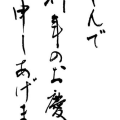 んで
新年のお慶
申しあげま